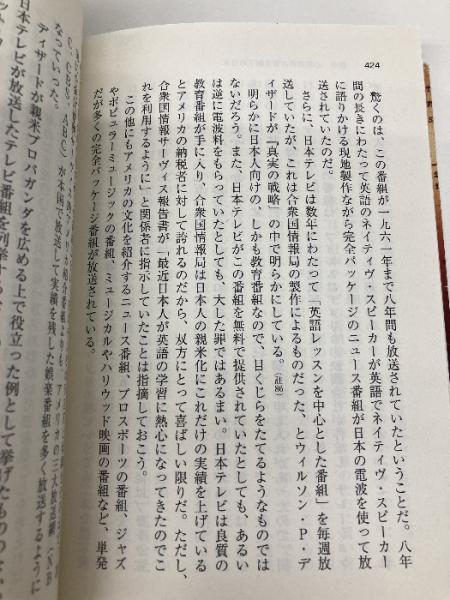 424
驚くのは、この番組が一九六一年まで八年間も放送されていたということだ。八年
間の長きにわたって英語のネイティヴ・スピーカーが英語でネイティヴ・スピーカー
に語りかける現地製作ながら完全パッケージのニュース番組が日本の電波を使って放
送されていたのだ。
さらに、日本テレビは数年にわたって「英語レッスンを中心とした番組」を毎週放
送していたが、これは合衆国情報局の製作によるものだった、とウィルソン・P・デ
ィザードが『真実の戦略』の中で明らかにしている。
明らかに日本人向けの、しかも教育番組なので、目くじらをたてるようなものでは
ないだろう。また、日本テレビがこの番組を無料で提供されていたとしても、あるい
は逆に電波料をもらっていたとしても、大した罪ではあるまい。日本テレビは良質の
教育番組が手に入り、合衆国情報局は日本人の親米化にこれだけの実績を上げている
とアメリカの納税者に対して誇れるのだから、双方にとって喜ばしい限りだ。ただし、
合衆国情報サーヴィス報告書が「最近日本人が英語の学習に熱心になってきたのでこ
れを利用するように」と関係者に指示していたことは指摘しておこう。
この他にもアメリカの文化を紹介するニュース番組、プロスポーツの番組、ジャズ
やポピュラーミュージックの番組、ミュージカルやハリウッド映画の番組など、単発
だが多くの完全パッケージ番組が放送されている。
アメリカの三大放送網（NB
C、CBS、ABC）が本国で放送して実績を残した娯楽番組を多く放送するように
なっていった。
ディザードが親米プロパガンダを広める上で役立った例として挙げたものの
日本テレビが放送したテレビ番組を列挙する